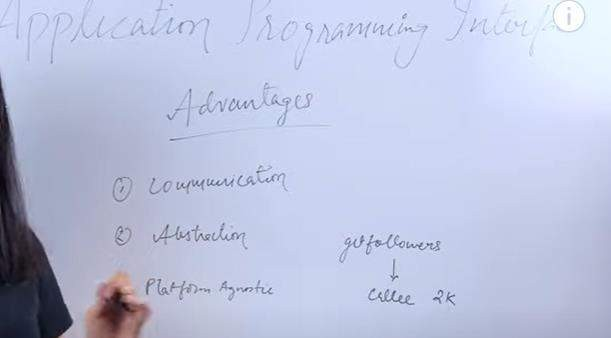 Application Programming Interf
Advantages
① Communication
② Abstraction
Platform Agnostic
getfollowers
↓
Callee 2K